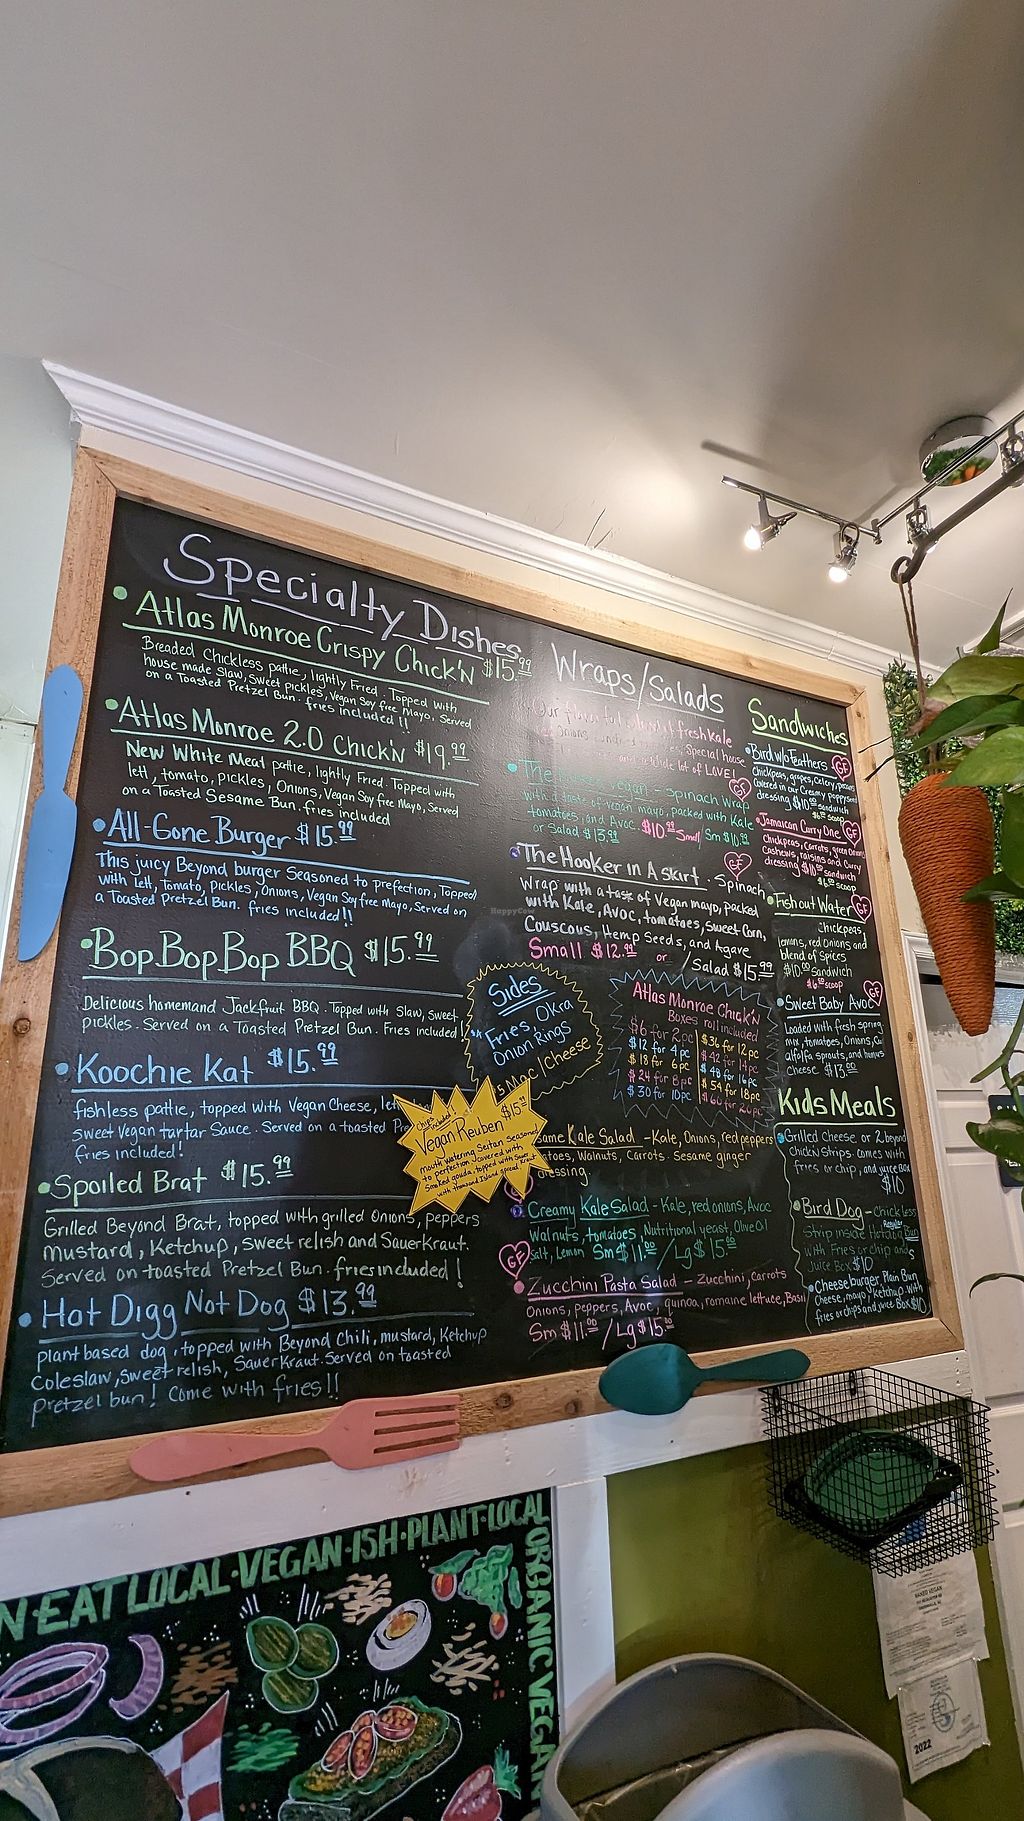 Specialty Dishes
Atlas Monroe Crispy Chick'n $15.99
Breaded Chickless pattie, lightly Fried. Topped with
house made Slaw, sweet pickles, Vegan Soy free Mayo. Served
on a Toasted Pretzel Bun. fries included!!
Atlas Monroe 2.0 Chick'n $19.99
New White Meat pattie, lightly Fried. Topped with
lett, tomato, pickles, Onions, Vegan Soy free Mayo, Served
on a Toasted Sesame Bun. fries included
All-Gone Burger $15.99
This juicy Beyond burger Seasoned to prefection, Topped
with Lett, Tomato, Pickles, Onions, Vegan Soy free Mayo, Served on
a Toasted Pretzel Bun. fries included!!
Bop Bop Bop BBQ $15.99
Delicious homemand Jackfruit BBQ. Topped with Slaw, sweet
pickles. Served on a Toasted Pretzel Bun. Fries included!
Koochie Kat $15.99
fishless pattie, topped with Vegan Cheese, lett
sweet Vegan tartar Sauce. Served on a toasted Pre
fries included!
Spoiled Brat $15.99
Grilled Beyond Brat, topped with grilled Onions, peppers
mustard, Ketchup, sweet relish and SauerKraut.
Served on toasted Pretzel Bun. fries included!
Hot Digg Not Dog $13.99
plant based dog, topped with Beyond Chili, mustard, Ketchup
Coleslaw, sweet relish, SauerKraut. Served on toasted
pretzel bun! Come with fries!!
Wraps/Salads
fresh kale
Special house
lot of LOVE!
GF
vegan - spinach Wrap
with a taste of vegan mayo, packed with Kale
tomatoes, and Avoc. $10.99 Small/ Sm $10.99
or Salad $13.99
The Hooker in A skirt. Spinach
GF
Wrap with a taste of Vegan mayo, packed
with Kale, Avoc, tomatoes, Sweet Corn,
Couscous, Hemp Seeds, and Agave
Small $12.99 or /Salad $15.99
Sides
Fries Okra
Onion Rings
Mac/Cheese
Vegan Reuben $15.99
mouth watering Seitan seasoned
to perfection, covered with
Smoked gouda, topped with Sauer Kraut
with thousand Island spread
Atlas Monroe Chick'n
Boxes roll included
$6 for 2pc $36 for 12pc
$12 for 4pc $42 for 14pc
$18 for 6pc $48 for 16pc
$24 for 8pc $54 for 18pc
$30 for 10pc $60 for 20pc
same Kale Salad - Kale, Onions, red peppers
atoes, Walnuts, Carrots. Sesame ginger
dressing.
Creamy Kale Salad - Kale, red onions, Avoc
Walnuts, tomatoes, Nutritional yeast, Olive Oil
Salt, Lemon Sm $11.00 / Lg $15.00
GF
Zucchini Pasta Salad - Zucchini, Carrots
Onions, peppers, Avoc, quinoa, romaine lettuce, Basil
Sm $11.00 / Lg $15.00
Sandwiches
Bird w/o Feathers GF
Chickpeas, grapes, Celery, pecans
Covered in our Creamy poppyseed
dressing $10.00 sandwich
$6.50 scoop
Jamaican Curry One GF
Chickpeas, Carrots, green Onions
Cashews, raisins and Curry
dressing $10.00 sandwich
$6.50 scoop
Fish out Water GF
Chickpeas,
lemons, red Onions and
blend of Spices
$10.00 sandwich
$6.50 scoop
Sweet Baby Avoc GF
Loaded with fresh spring
mix, tomatoes, Onions, Cu
alfalfa sprouts, and humus
Cheese $13.00
Kids Meals
Grilled Cheese or 2 beyond
chick'n strips. comes with
fries or chip, and juice Box
$10
Bird Dog - chick less
Strip inside Hotdog Bun
Regular
with Fries or chip and
Juice Box $10
Cheeseburger, Plain Bun
Cheese, mayo, Ketchup. with
fries or chips and juice Box $10
HappyCow
N·EAT LOCAL·VEGAN·ISH·PLANT·LOCAL
ORGANIC VEGAN
NAKED VEGAN
2022